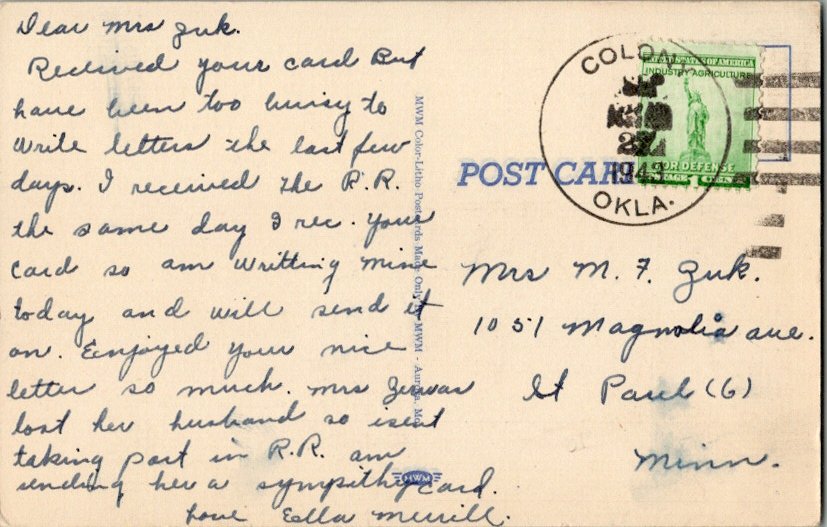 Dear Mrs Zuk.
Recieved your card But
have been too buisy to
write letters the last few
days. I received the R.R.
the same day I rec. your
card so am writting mine
today and will send it
on. Eenjoyed your nice
letter so much. Mrs
lost her husband so isent
taking part in R.R. am
sending her a sympithy card.
Love Ella Merrill.
MWM Color-Litho Postcards Made Only By MWM - Aurora, Mo.
MWM
POST CARD
COLONY
27
1943
OKLA.
UNITED STATES OF AMERICA
INDUSTRY AGRICULTURE
FOR DEFENSE
POSTAGE 1 CENTS
Mrs M. F. Zuk.
1051 Magnolia ave.
St Paul (6)
Minn.